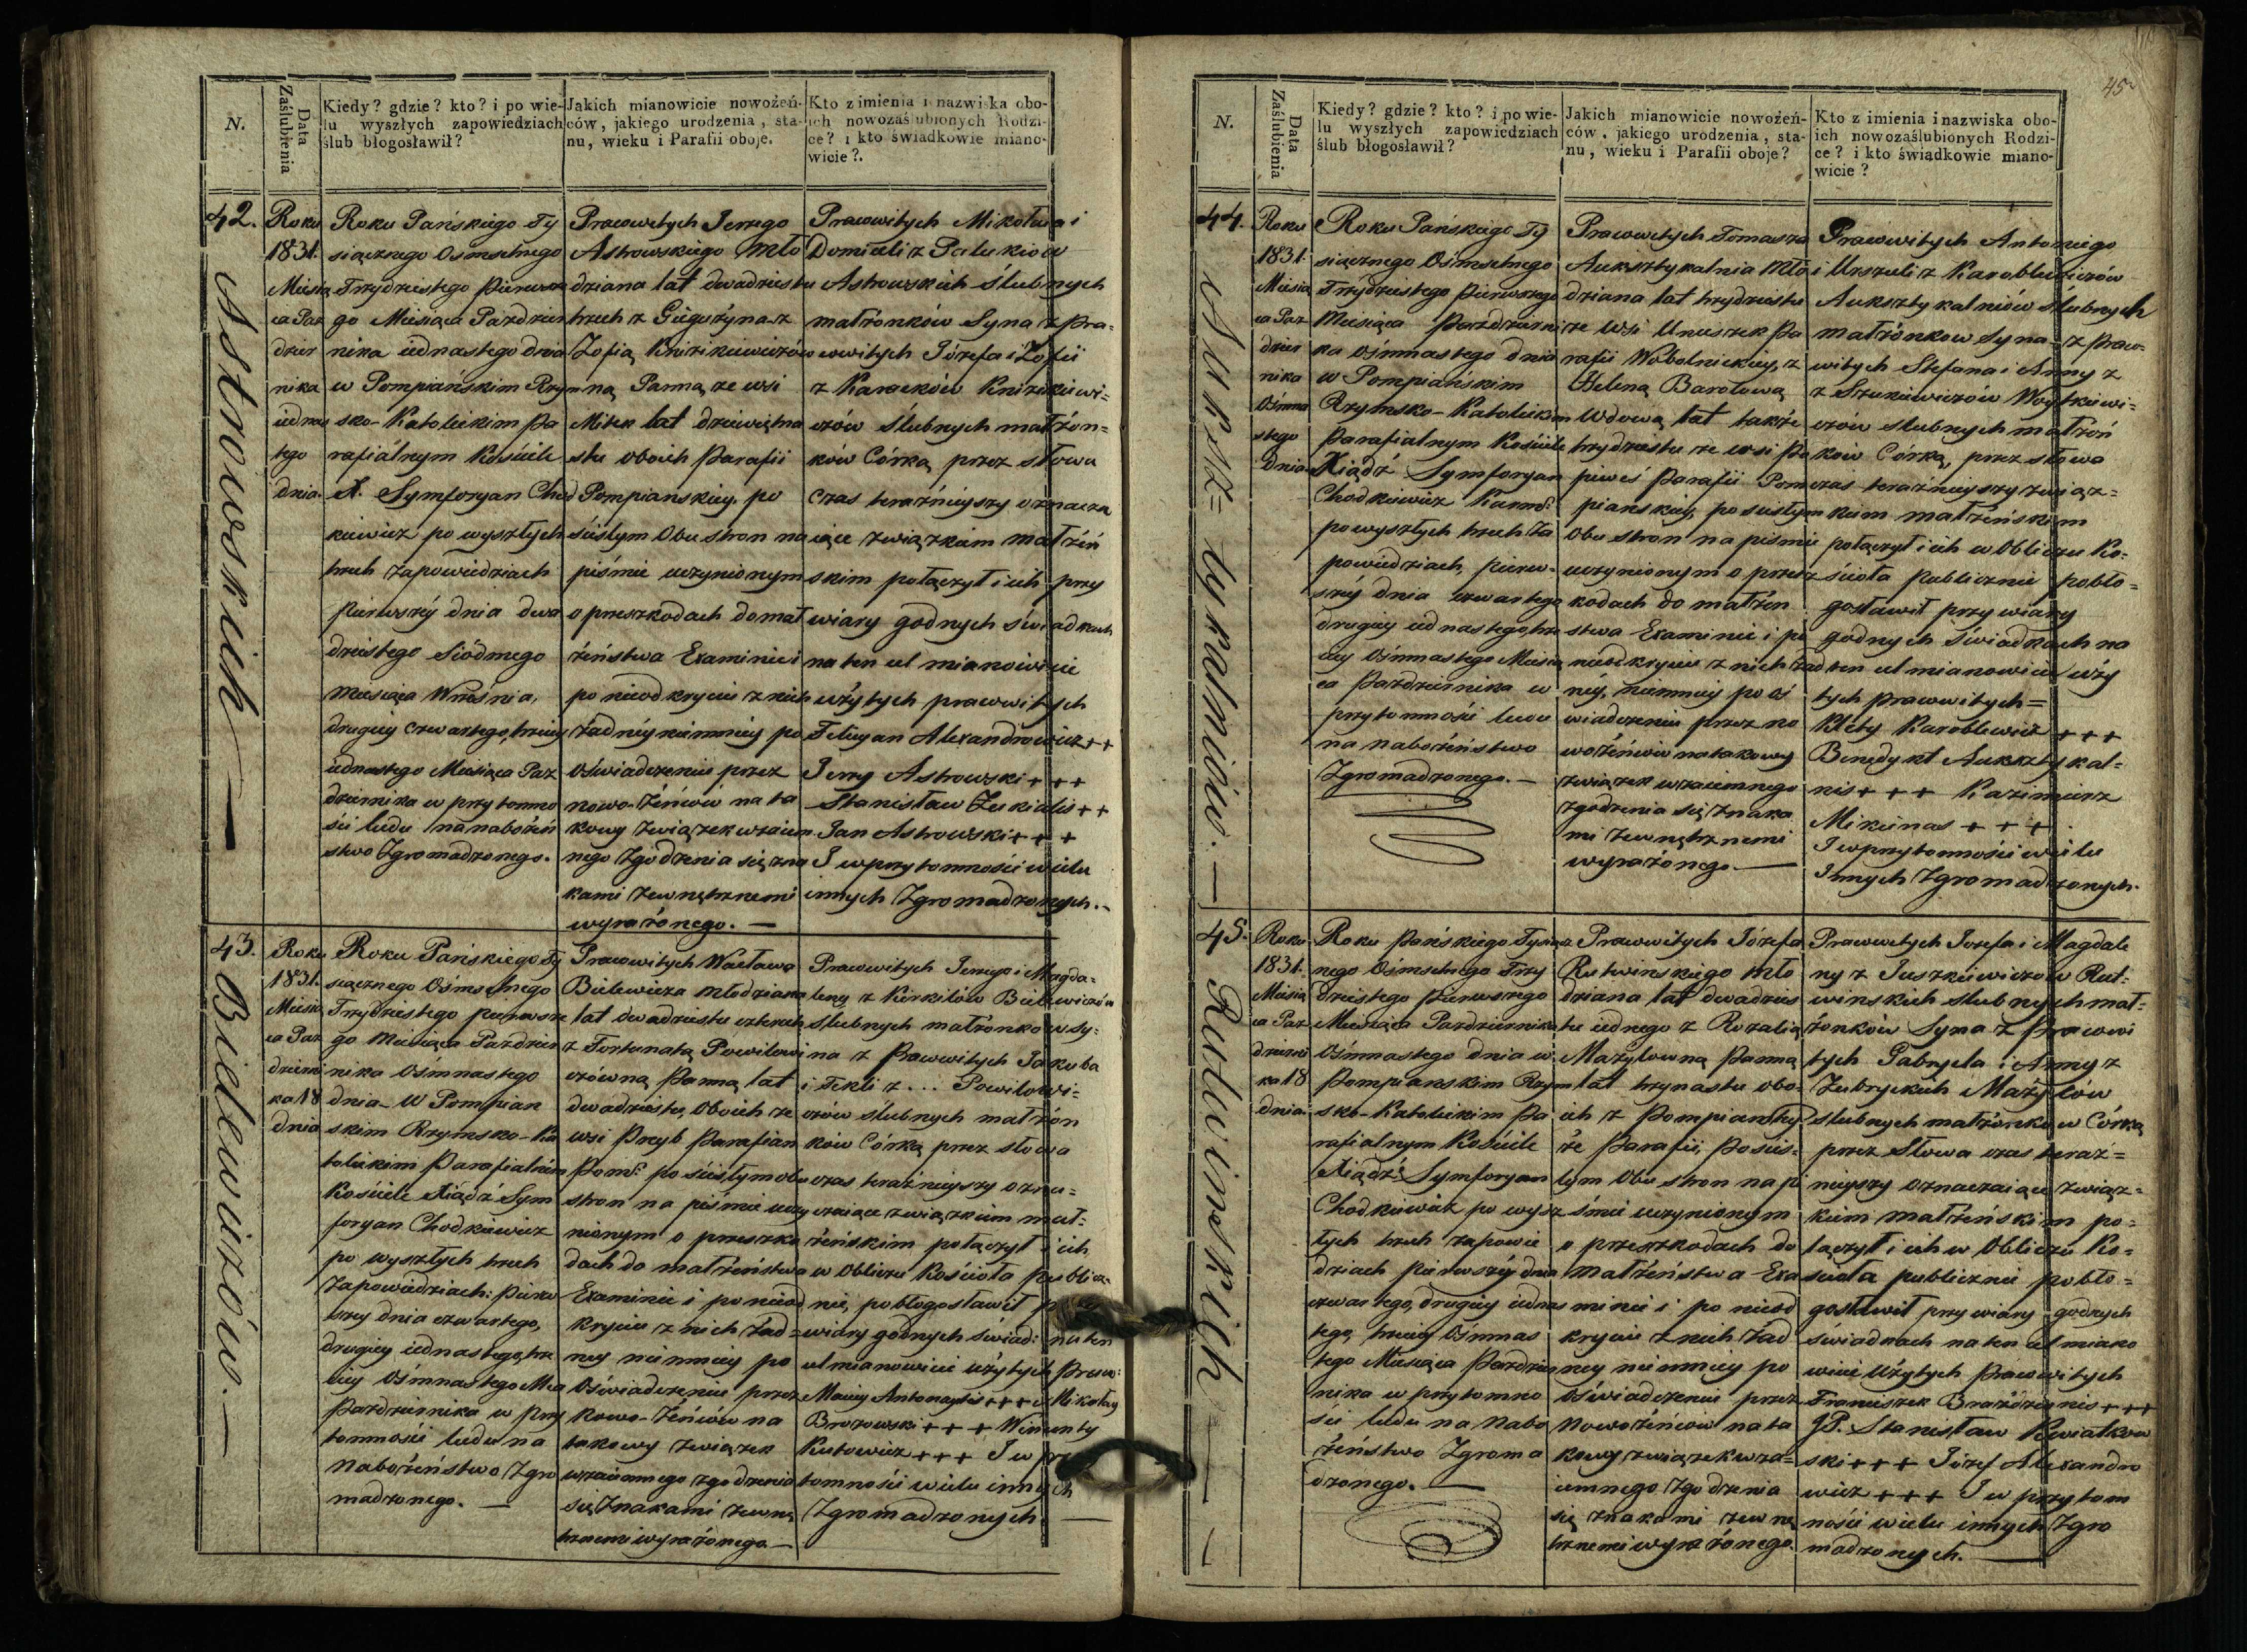 N.
Data Zaślubienia
Kiedy? gdzie? kto? i po wie-
lu wyszłych zapowiedziach
ślub błogosławił?
Jakich mianowicie nowożeń-
ców, jakiego urodzenia, sta-
nu, wieku i Parafii oboje.
Kto z imienia i nazwiska obo-
ich nowozaślubionych Rodzi-
ce? i kto świadkowie miano-
wicie?.
42.
Astrowskich —
Roku
1831.
Miesią
ca Paz
dzier
nika
iednas
tego
dnia.
Roku Pańskiego Ty
siącznego Osmsetnego
Trzydziestego Pierwsze
go Miesiąca Pazdzier
nika iednastego dnia
w Pompiańskim Rzym
sko-Katolickim Pa
rafiálnym Kościele
X. Symforyan Chod
kiewicz po wyszłych
trzech zapowiedziach
pierwszéy dnia dwa
dziestego Siódmego
Miesiąca Wrześnía,
drugiey czwartego, trzeciey
iednastego Miesiąca Paz
dziernika w przytomno
ści ludu na nabożeń
stwo Zgromadzonego.
Pracowitych Jerzego
Astrowskiego Mło
dziana lat dwadziestu
trzech z Giegużyna z
Zofią Knizikiewiczów
ną Panną ze wsi
Mitek lat dziewiętna
stu oboich Parafii
Pompianskiey. po
ścisłym Obu stron na
piśmie uczynionym
o przeszkodach do mał
żeństwa Examinie i
po nieodkryciu z nich
żadnéy niemniey po
oświadczeniu przez
nowo-żeńców na ta
kowy związek wzaiem
nego zgodzenia się zna
kami zewnętrznemi
wyrażonego. —
Pracowitych Mikołaia i
Domicéli z Palukiow
Astrowskich Slubnych
małżonków Syna, z Pra-
cowitych Józefa i Zofii
z Karackow Knizikiewi=
czów Slubnych małżon=
ków Córką przez słowa
czas teraźnieyszy oznacza
iące związkiem małżeń
skim połączył i ich przy
wiary godnych świadkach
na ten cel mianowicie
użytych pracowitych
Felicyan Alexandrowicz ++
Jerzy Astrowski +++
Stanisław Zukialis ++
Jan Astrowski +++
I w przytomności wielu
innych Zgromadzonych.-
43.
Bielewiczów. —
Roku
1831.
Miesią
ca Paz
dzierni
ka 18
dnia
Roku Pańskiego Ty
siącznego Osmsetnego
Trzydziestego pierwsze
go Miesiąca Pazdzier
nika Ośmnastego
dnia- W Pompian
skim Rzymsko-Ka
tolickim Parafialnim
Kościele Xiądz Sym
foryan Chodkiewicz
po wyszłych trzech
Zapowiedziach: pierw
szey dnia czwartego,
drugiey iednastego, trze
ciey Ośmnastego Mca
Pazdziernika w przy
tomności ludu na
nabożeństwo Zgro
madzonego. —
Pracowitych Wacława
Bielewicza młodziana
lat dwadziestu czterech
z Fortunatą Powilowi
czówną Panną lat
dwadziestu, Oboich ze
wsi Pcyb Parafian
Pom: po ścisłym obu
stron na piśmie uczy
nionym o przeszko
dach do małżeństwa
Examinie i po nieod
kryciu z nich żad=
ney niemniey po
Oświadczeniu przez
Nowo-żeńców na
takowy związek
wzaiemnego zgodzenia
się Znakami zewnę
trznemi wyrażonego —
Pracowitych Jerzego i Magda-
leny z Kirkilow Bielewiczów
Slubnych małżonkow sy-
na z Pracowitych Jakuba
i Tekli z ... Powilowi=
czów ślubnych małżon
ków Córką przez słowa
czas teraźnieyszy ozna=
czaiące związkiem mał-
żeńskim połączył i ich
w Obliczu Kościoła publicz-
nie, pobłogosławił przy
wiary godnych świad: na ten
cel mianowicie użytych Praco:
Maciey Antonaytis +++ Mikołay
Brozowski +++ Wincenty
Kutowicz +++ I w przy
tomności wielu innych
Zgromadzonych. —
45
N.
Data Zaślubienia
Kiedy? gdzie? kto? i po wie-
lu wyszłych zapowiedziach
ślub błogosławił?
Jakich mianowicie nowożeń-
ców, jakiego urodzenia, sta-
nu, wieku i Parafii oboje?
Kto z imienia i nazwiska obo-
ich nowozaślubionych Rodzi-
ce? i kto świadkowie miano-
wicie?
44.
Aukszty= kalniów. —
Roku
1831.
Miesią
ca Paz
dzier
nika
Ośmna
stego
Dnia.
Roku Pańskiego Ty
siącznego Ośmsetnego
Trzydziestego Pierwszego
Miesiąca Pazdzierni
ka ośmnastego dnia
w Pompiańskim
Rzymsko-Katolickim
Parafialnym Kościele
Xiądz Symforyan
Chodkiewicz Karm:
po wyszłych trzech Za
powiedziach, pierw-
széy dnia czwartego
drugiey iednastego, trze
ciey Ośmnastego Miesią
ca Pazdziernika w
przytomności ludu
na nabożeństwo
Zgromadzonego. —
Pracowitych Tomasza
Aukrztykalnia Mło
dziana lat trzydziestu
ze Wsi Unuszek Pa
rafii Wobolnickiey, z
Heleną Barołową
Wdową lat także
trzydziestu ze wsi Po
piweś Parafii Pom
piańskiey, po ścisłym
Obu stron na piśmie
uczynionym o przesz
kodach do małżeń
stwa Examinie i po
nieodkryciu z nich żad
néy, niemniey po oś
wiadczeniu przez no
wożeńców na takowy
związek wzaiemnego
zgodzenia się Znaka
mi zewnętrznemi
wyrażonego —
Pracowitych Antoniego
i Urszuli z Karoblewiczów
Aukszty kalniów Slubnych
małżonkow Syna - z Praco-
witych Stefana i Anny z
z Szukiewiczów Woytkiewi=
czów slubnych małżoń
ków Córką, przez słowa
czas teraznieyszy związ=
kiem małżeńskim
połączył i ich w Obliczu Ko=
ścioła Publicznie pobło=
gosławił przy wiary
godnych świadkach na
ten cel mianowicie uży
tych pracowitych=
Klety Karoblewicz +++
Benedykt Auksztykal-
nis +++ Kazimierz
Mikienas +++
I w przytomności wielu
Innych Zgromadzonych.
45.
Rutwinskich — —
Roku
1831.
Miesią
ca Paz
dzierni
ka 18
dnia
Roku Pańskiego Tysiącz
nego Ośmsetnego Trzy
dziestego pierwszego
Miesiąca Pazdziernika
Ośmnastego dnia w
Pompianskim Rzym
sko-Katolickim Pa
rafialnym Kościele
Xiądz Symforyan
Chodkiewicz po wysz
łych trzech zapowie
dziach Pierwszéy dnia
czwartego, drugiey iednas
tego, trzeciey Ośmnas
tego Miesiąca Pazdzier
nika w przytomno
ści ludu na Nabo
żeństwo Zgroma
dzonego. —
Pracowitych Józefa
Rutwinskiego mło
dziana lat dwadzies
tu iednego z Rozalią
Mażylowną Panną
lat trzynastu obo-
ich z Pompianskiey
że Parafii, Po ścis-
łym Obu stron na pi
śmie uczynionym
o przeszkodach do
Małżeństwa Exa
minie i po nieod
kryciu z nich żad
ney niemniey po
Oświadczeniu przez
Nowożeńców na ta
kowy związek wza=
iemnego Zgodzenia
się znakami zewnę
trznemi wyrażonego.
Pracowitych Jozefa i Magdale
ny z Juszkiewiczow Rut-
winskich slubnych mał-
żonków Syna z Pracowi
tych Gabryela i Anny z
Zubryckich Mażylów
slubnych małżonków Córką
przez Słowa czas teraź=
nieyszy oznaczaiące związ=
kiem małżeńskim po=
łączył i ich w Obliczu Ko=
ścioła publicznie pobło=
gosławił przy wiary godnych
świadkach na ten cel miano
wicie Użytych Pracowitych
Franciszek Braździonis +++
JP. Stanisław Kwiatkow
ski +++ Józef Alexandro
wicz +++ I w przytom
ności wielu innych Zgro
madzonych. —